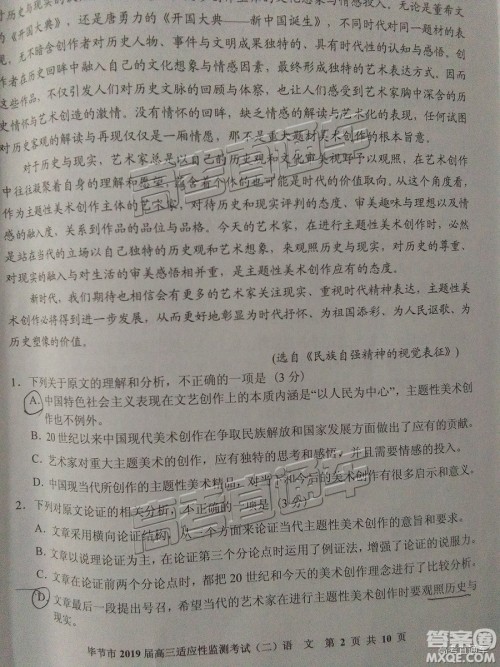 历史与现实的
情感投入。无论是董希文
的《开国大典》，还是唐勇力的《开国大典——新中国诞生》，不同时代对同一题材的表
现，无不暗含创作者对历史人物、事件与文明成果独特的、具有时代性的认知与感悟。创
作者在历史回眸中融入自己的文化想象与情感因素，最终形成独特的艺术表达方式。而欣
赏这些作品，不仅引发人们对历史文脉的回顾与体会，也感受到艺术家胸中深含的历
史情怀与艺术创造的激情。没有情怀的回眸，缺乏情感的解读与艺术化的表现，任何试图
对历史客观的解读与再现仅仅是一厢情愿，那不是重大题材美术创作的根本旨意。
对于历史与现实，艺术家总是以自己独特的历史观和文化审美视野予以观照，在艺术创作
中往往凝聚着自身的理解和愿望，蕴含着他的也可能是时代的价值取向。从这个角度看，
作为主题性美术创作主体的艺术家，对待历史和现实评判的态度，审美趣味与理想的融入
敏锐度，关系到作品的品位与品格。今天的艺术家，在面对主题性美术创作时，必然
是站在当代的立场以自己独特的历史观和艺术想象，来观照历史与现实，对历史的尊重、
对现实的融入与对生活的审美感悟相并重，是主题性美术创作应有的态度。
新时代，我们期待也相信会有更多的艺术家关注现实、重视时代精神的表达，主题性美
术创作必将得到进一步发展，从而更好地担当起为时代添彩、为祖国添彩、为人民讴歌、为
历史塑像的价值。
（选自《民族自强精神的视觉表征》）
1．下列关于原文的理解和分析，不正确的一项是（3 分）
A．中国特色社会主义表现在文艺创作上的本质内涵是“以人民为中心”，主题性美术创
作也不例外。
B．20 世纪以来中国现代美术创作在争取民族解放和国家发展方面做出了应有的贡献。
C．艺术家对重大主题美术的创作，应有独特的思考和感悟，并且需要情感的投入。
D．中国现当代所创作的具有主题性的美术作品，都能给人以强烈的情感激励。
2．下列对原文论证的相关分析，不正确的一项是（3 分）
A．文章采用横向论证结构，从三个方面来论证当代主题性美术创作的意旨和要求。
B．文章以说理论证为主，在论证第三个分论点时运用了例证法，增强了论证的说服力。
C．文章在论证前两个分论点时，都把 20 世纪和今天的美术创作理念进行了比较分析。
D．文章最后提出号召，希望当代的艺术家在进行主题性美术创作时要观照历史与
毕节市 2019 届高三适应性监测考试（二）语 文 第 2 页 共 10 页
高考直通车
高考直通车